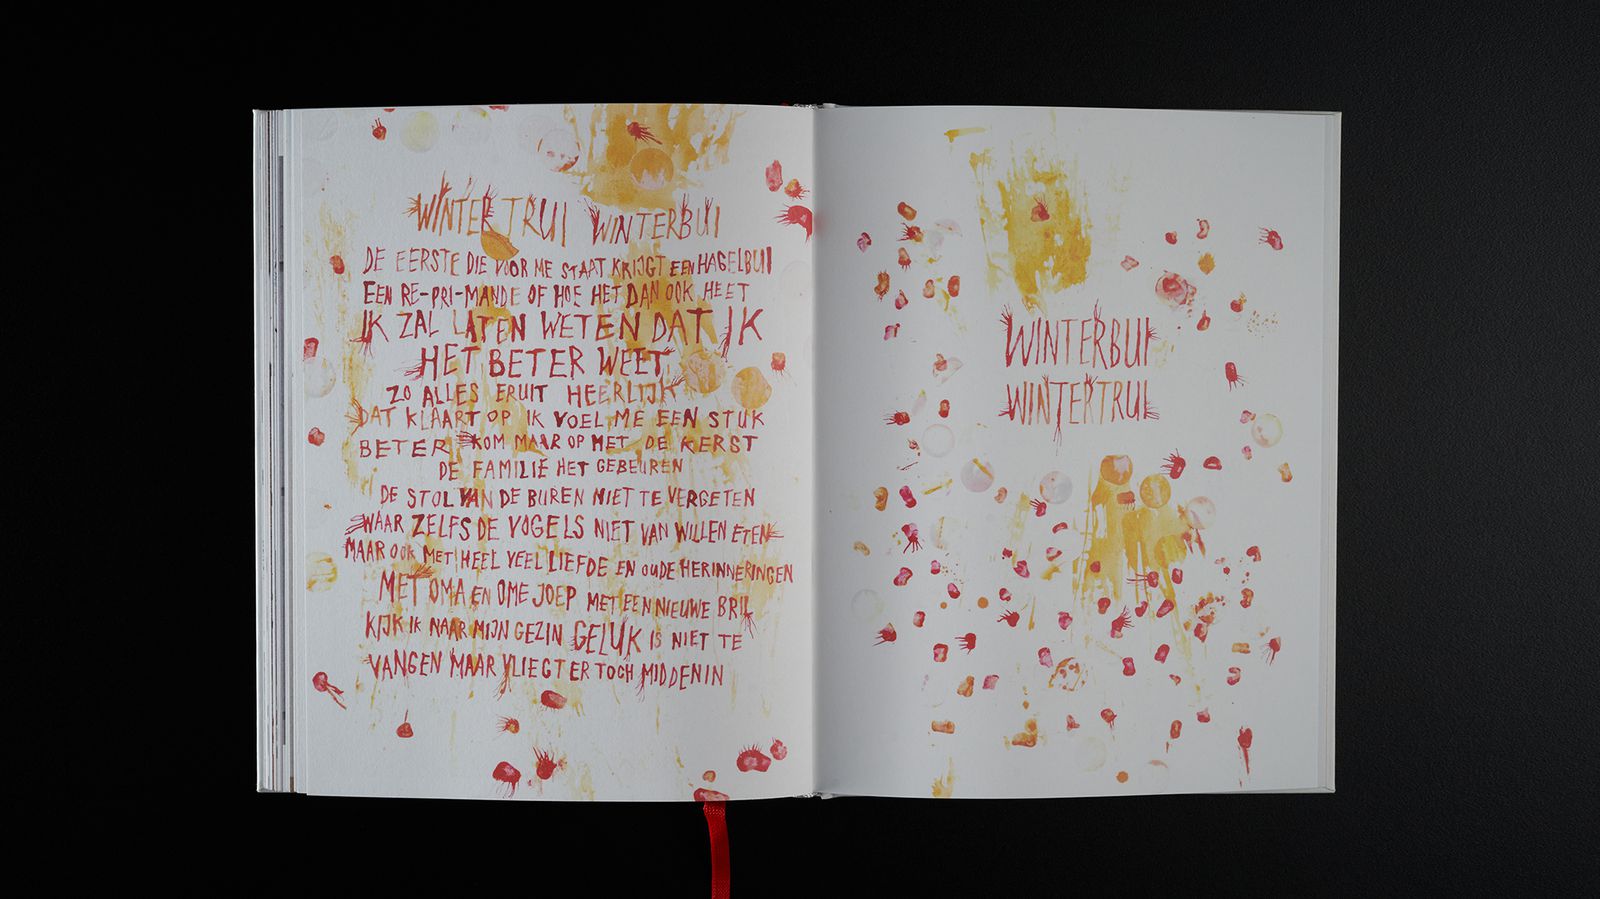 WINTERTRUI WINTERBUI
DE EERSTE DIE VOOR ME STAAT KRIJGT EEN HAGELBUI
EEN RE-PRI-MANDE OF HOE HET DAN OOK HEET
IK ZAL LATEN WETEN DAT IK
HET BETER WEET
ZO ALLES ERUIT HEERLIJK
DAT KLAART OP IK VOEL ME EEN STUK
BETER KOM MAAR OP MET DE KERST
DE FAMILIE HET GEBEUREN
DE STOL VAN DE BUREN NIET TE VERGETEN
WAAR ZELFS DE VOGELS NIET VAN WILLEN ETEN
MAAR OOK MET HEEL VEEL LIEFDE EN OUDE HERINNERINGEN
MET OMA EN OME JOEP MET EEN NIEUWE BRIL
KIJK IK NAAR MIJN GEZIN GELUK IS NIET TE
VANGEN MAAR VLIEGT ER TOCH MIDDENIN
WINTERBUI
WINTERTRUI